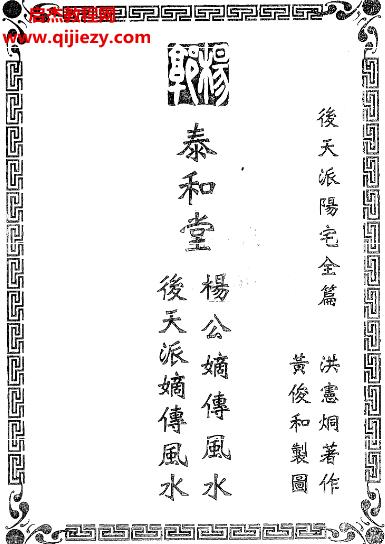 启杰教程网
www.qijiezy.com
後天派陽宅全篇
洪憲炯著作
黃俊和製圖
楊郭
泰和堂
楊公嫡傳風水
後天派嫡傳風水